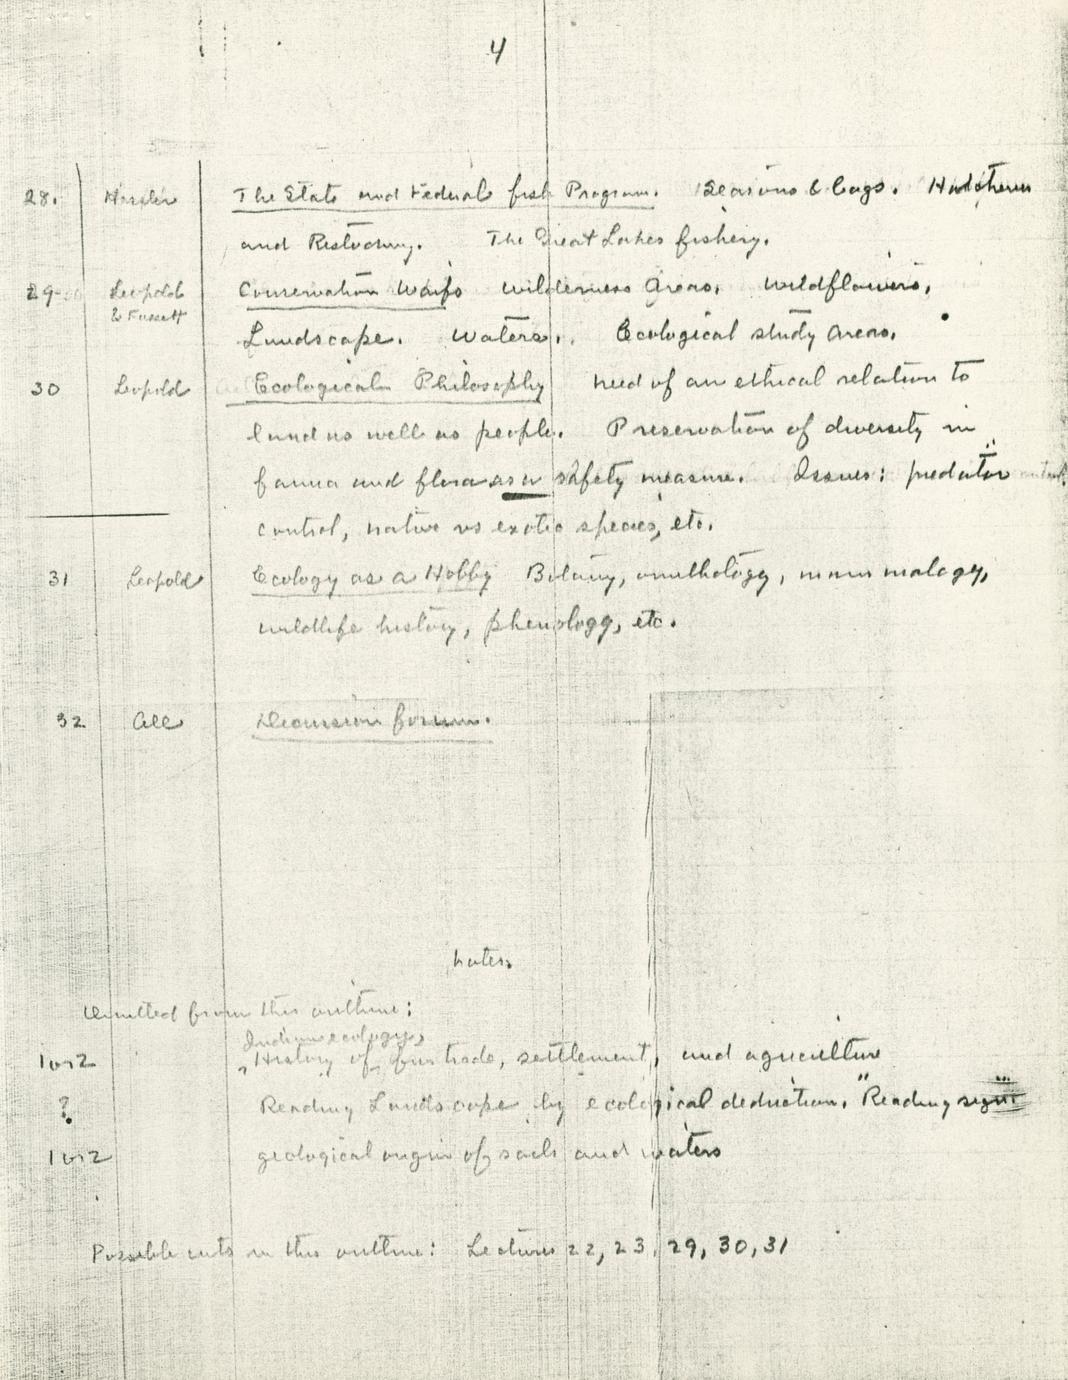 4
28. Hasler The State and Federal fish Program. Seasons & bags. Hatcheries
and Restocking. The Great Lakes fishery.
29 Leopold & Fassett Conservation Waifs wilderness areas, wildflowers,
Landscape. Waters. Ecological study areas.
30 Leopold Ecological Philosophy need of an ethical relation to
land as well as people. Preservation of diversity in
fauna and flora as a safety measure. Issues: predator
control, native vs exotic species, etc.
31 Leopold Ecology as a Hobby Botany, ornithology, mammalogy,
wildlife history, phenology, etc.
32 All Discussion forum.
Notes:
Omitted from this outline:
Indian ecology,
1 or 2 History of fur trade, settlement, and agriculture
? Reading Landscape by ecological deduction. "Reading sign"
1 or 2 geological origin of soils and waters
Possible cuts in this outline: Lectures 22, 23, 29, 30, 31